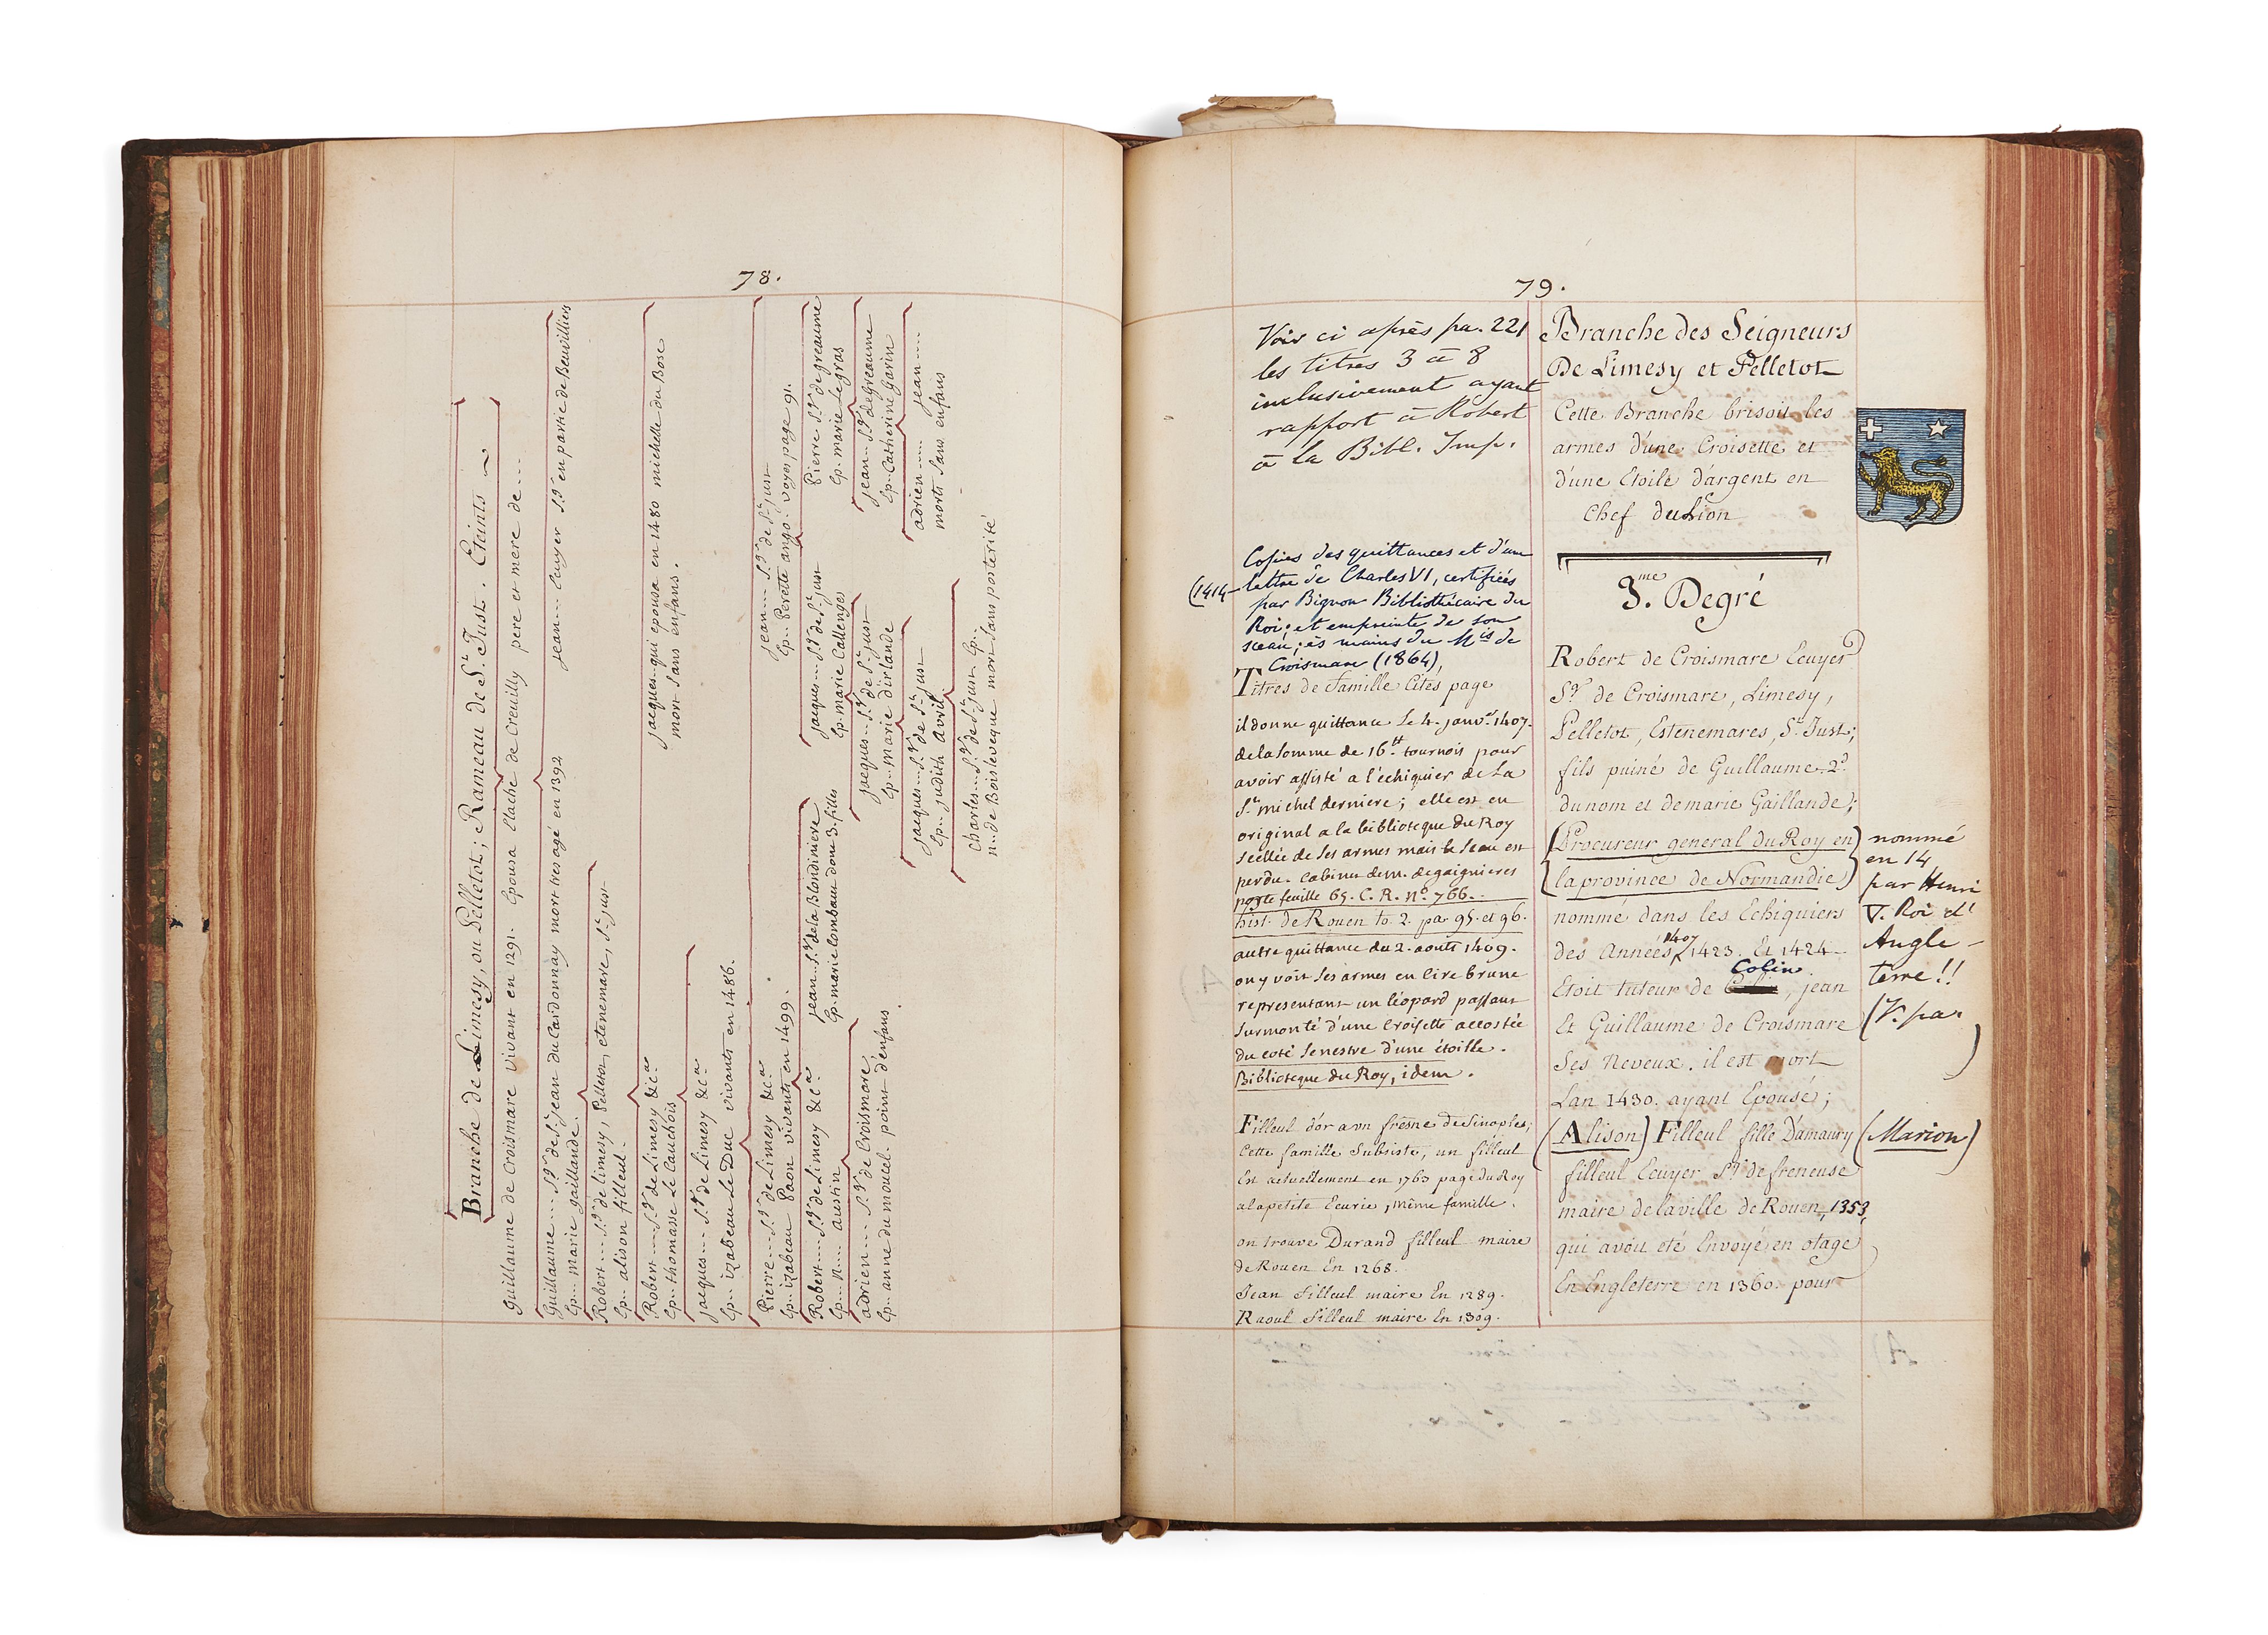 78.
Branche de Limesy, ou Pelletot; Rameau de St. Just. Eteints
Guillaume de Croismare vivant en 1291. Epousa Etache de Creuilly pere et mere de ...
Guillaume ... Sgr. de St. jean du Cardonnay mort tres agé en 1392
Ep.. marie gaillande.
jean ... Ecuyer Sgr. en partie de Beuvilliers
Robert ... Sgr. de limesy, Pelletot, etenemare, St. just
Ep.. alison filleul.
Robert ... Sgr. de Limesy &ca
Ep.. thomasse Le Cauchois
jacques.. qui epousa en 1480 michelle du Bosc
mort sans enfans.
jacques ... Sgr. de Limesy &ca
Ep.. izabeau Le Duc vivants en 1486.
Pierre ... Sgr. de Limesy &ca
Ep.. izabeau Paon vivants en 1499.
jean ... Sgr. de St. just
Ep.. Perette ango. voyes page 91.
Robert ... Sgr. de Limesy &ca
Ep.. n... austin
jean.. Sgr. de la Blondiniere
Ep. marie lombau dont 3. filles
jacques ... Sgr. de St. just
Ep. marie Callenges
Pierre Sgr. de greaume
Ep.. marie Legras
adrien ... Sgr. de Croismare
Ep.. anne du moucel. point d'enfans.
jacques ... Sgr. de St. just
Ep.. marie d'irlande
jean .. Sgr. de greaume
Ep.. Catherine Garin
jacques ... Sgr. de St. just
Ep.. judith avril
adrien ... jean ...
morts sans enfans
Charles ... Sgr. de St. just Ep..
n... de Boisleveque mort sans posterité
79.
Voir ci après pa. 221
les titres 3 à 8
inclusivement ayant
rapport à Robert
à la Bibl. Imp.
Copies des quittances et d'une
(1414 — lettre de Charles VI, certifiées
par Bignon Bibliothécaire du
Roi; et empreinte de son
sceau; ès mains du Mis de
Croismare (1864),
Titres de famille Cités page
il donne quittance Le 4. janv.er 1407.
de la somme de 16tt. tournois pour
avoir assisté a l'echiquier de La
St. michel derniere; elle est en
original a la biblioteque du Roy
scellée de ses armes mais le seau est
perdu. cabinet de m. de gaignieres
porte feuille 65. C. R. no. 766.
hist. de Rouen to. 2. par 95. et 96.
autre quittance du 2. aoust 1409.
on y voit ses armes en cire brune
representant un léopard passant
surmonté d'une croisette accostée
du coté senestre d'une étoille.
Biblioteque du Roy, idem.
Filleul d'or a un fresne de Sinoples;
Cette famille subsiste, un filleul
Est actuellement en 1763 page du Roy
a la petite Ecurie, même famille.
on trouve Durand filleul maire
de Rouen En 1268.
Jean Filleul maire En 1289.
Raoul Filleul maire En 1309.
Branche des Seigneurs
De Limesy et Pelletot
Cette Branche brisoit les
armes d'une Croisette et
d'une Etoile d'argent en
Chef du Lion
3.me Degré
Robert de Croismare Ecuyer
Sgr. de Croismare, Limesy,
Pelletot, Estenemares, St. Just;
fils puiné de Guillaume 2d.
du nom et de marie Gaillande;
(Procureur general du Roy en
la province de Normandie)
nommé dans les Echiquiers
des Années 1407 1423. Et 1424
Etoit tuteur de Colin, jean
Et Guillaume de Croismare
Ses Neveux. il est mort
Lan 1430. ayant Epousé;
(Alison) Filleul fille D'amaury
filleul Ecuyer Sgr. de freneuse
maire de la ville de Rouen, 1353,
qui avoit eté Envoyé en otage
En Engleterre en 1360. pour
nommé
en 14
par Henri
V. Roi d'
Angle-
terre!!
(V. pa.
)
(Marion)